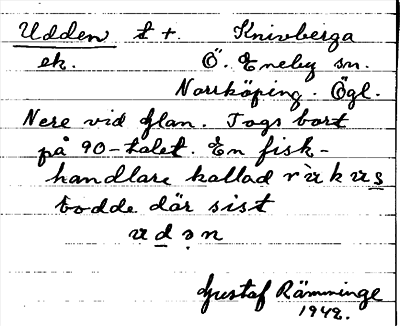 Udden t †. Knivberga
ek. Ö. Eneby sn.
Norrköping. Ögl.
Nere vid Glan. Togs bort
på 90-talet. En fisk-
handlare kallad rùkus
bodde där sist
udən
Gustaf Rämminge
1942.